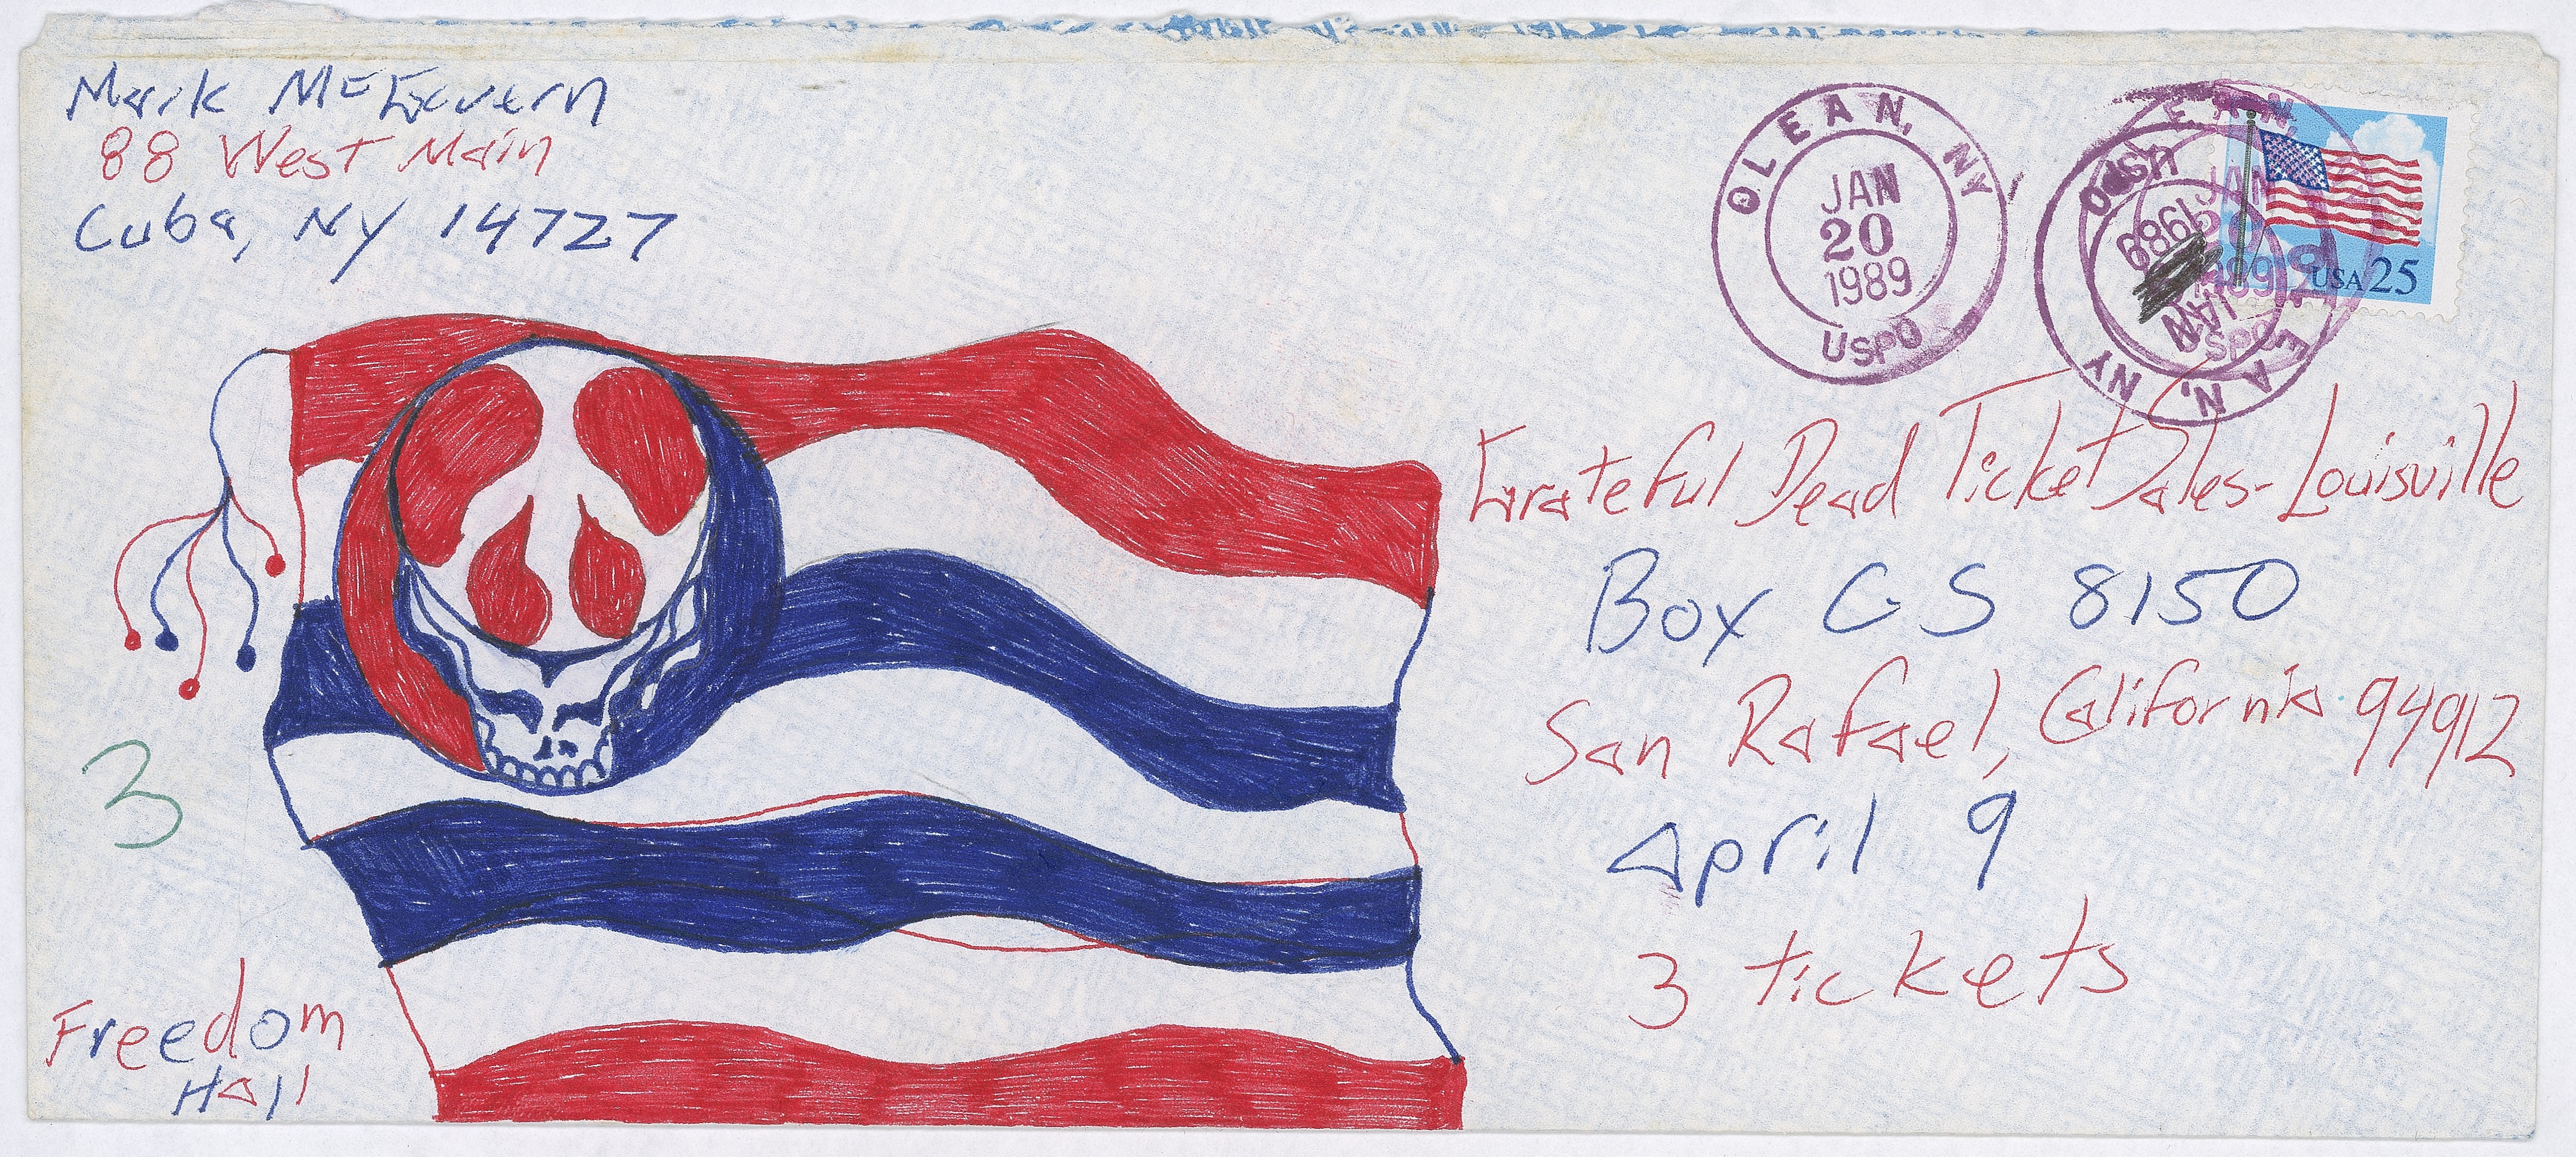 Mark McGavern
88 West Main
Cuba, NY 14727
OLEAN, NY
JAN
20
1989
USPO
USPO
1989
JAN
EAN, NY
USA 25
Grateful Dead Ticket Sales - Louisville
Box CS 8150
San Rafael, California 94912
April 9
3 tickets
3
Freedom
Hall